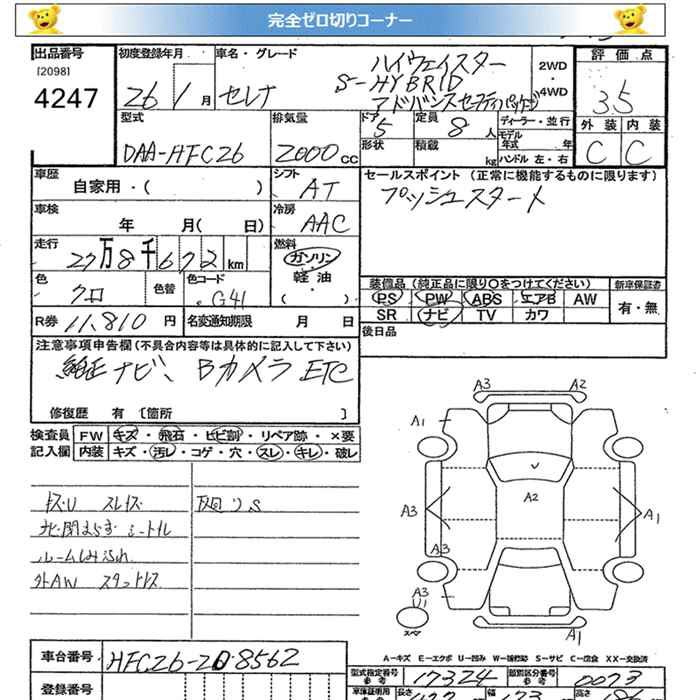 完全ゼロ切りコーナー
出品番号 初度登録年月 車名・グレード 2WD・4WD 評価点
[2098] 4247 26年 1月 セレナ ハイウェイスター
S-HYBRID
アドバンスセーフティパッケージ
3.5
型式 排気量 ドア 5 定員 8人 ディーラー・並行 外装 内装
DAA-HFC26 2000cc 形状 積載 kg モデル年式 年 ハンドル 左・右 C C
車歴 自家用・( ) シフト AT セールスポイント (正常に機能するものに限ります)
プッシュスタート
車検 年 月( 日) 冷房 AAC
走行 27万8千672km 燃料 ガソリン・軽油・( )
色 クロ 色替 色コード G41 装備品(純正品に限り○をつけてください) 新車保証書
PS PW ABS エアB AW 有・無
R券 11,810円 名変通知期限 月 日 SR ナビ TV カワ
後日品
注意事項申告欄(不具合内容等は具体的に記入して下さい)
純正ナビ、Bカメラ ETC
修復歴 有 [箇所 ]
検査員 FW キズ・飛石・ヒビ割・リペア跡・×要
記入欄 内装 キズ・汚レ・コゲ・穴・スレ・キレ・破レ
キズU スレキズ
ルームしみ汚れ
外AW スタッドレス
A3 A2
A1
A2
A3 A1
A3
A3
U1
スペア A1
A-キズ E-エクボ U-凹み W-補修跡 S-サビ C-腐食 XX-交換済
車台番号 HFC26-208562 型式指定番号 参考 17324 類別区分番号 参考 0073
登録番号 車庫証明用 参考 長さ 幅 高さ